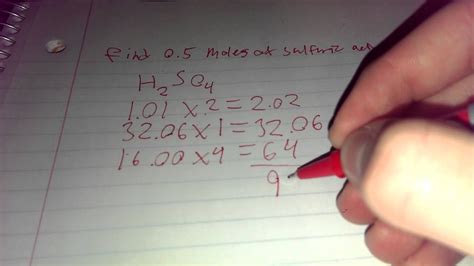 find 0.5 moles of sulfuric
H2SO4
1.01 x 2 = 2.02
32.06 x 1 = 32.06
16.00 x 4 = 64
9